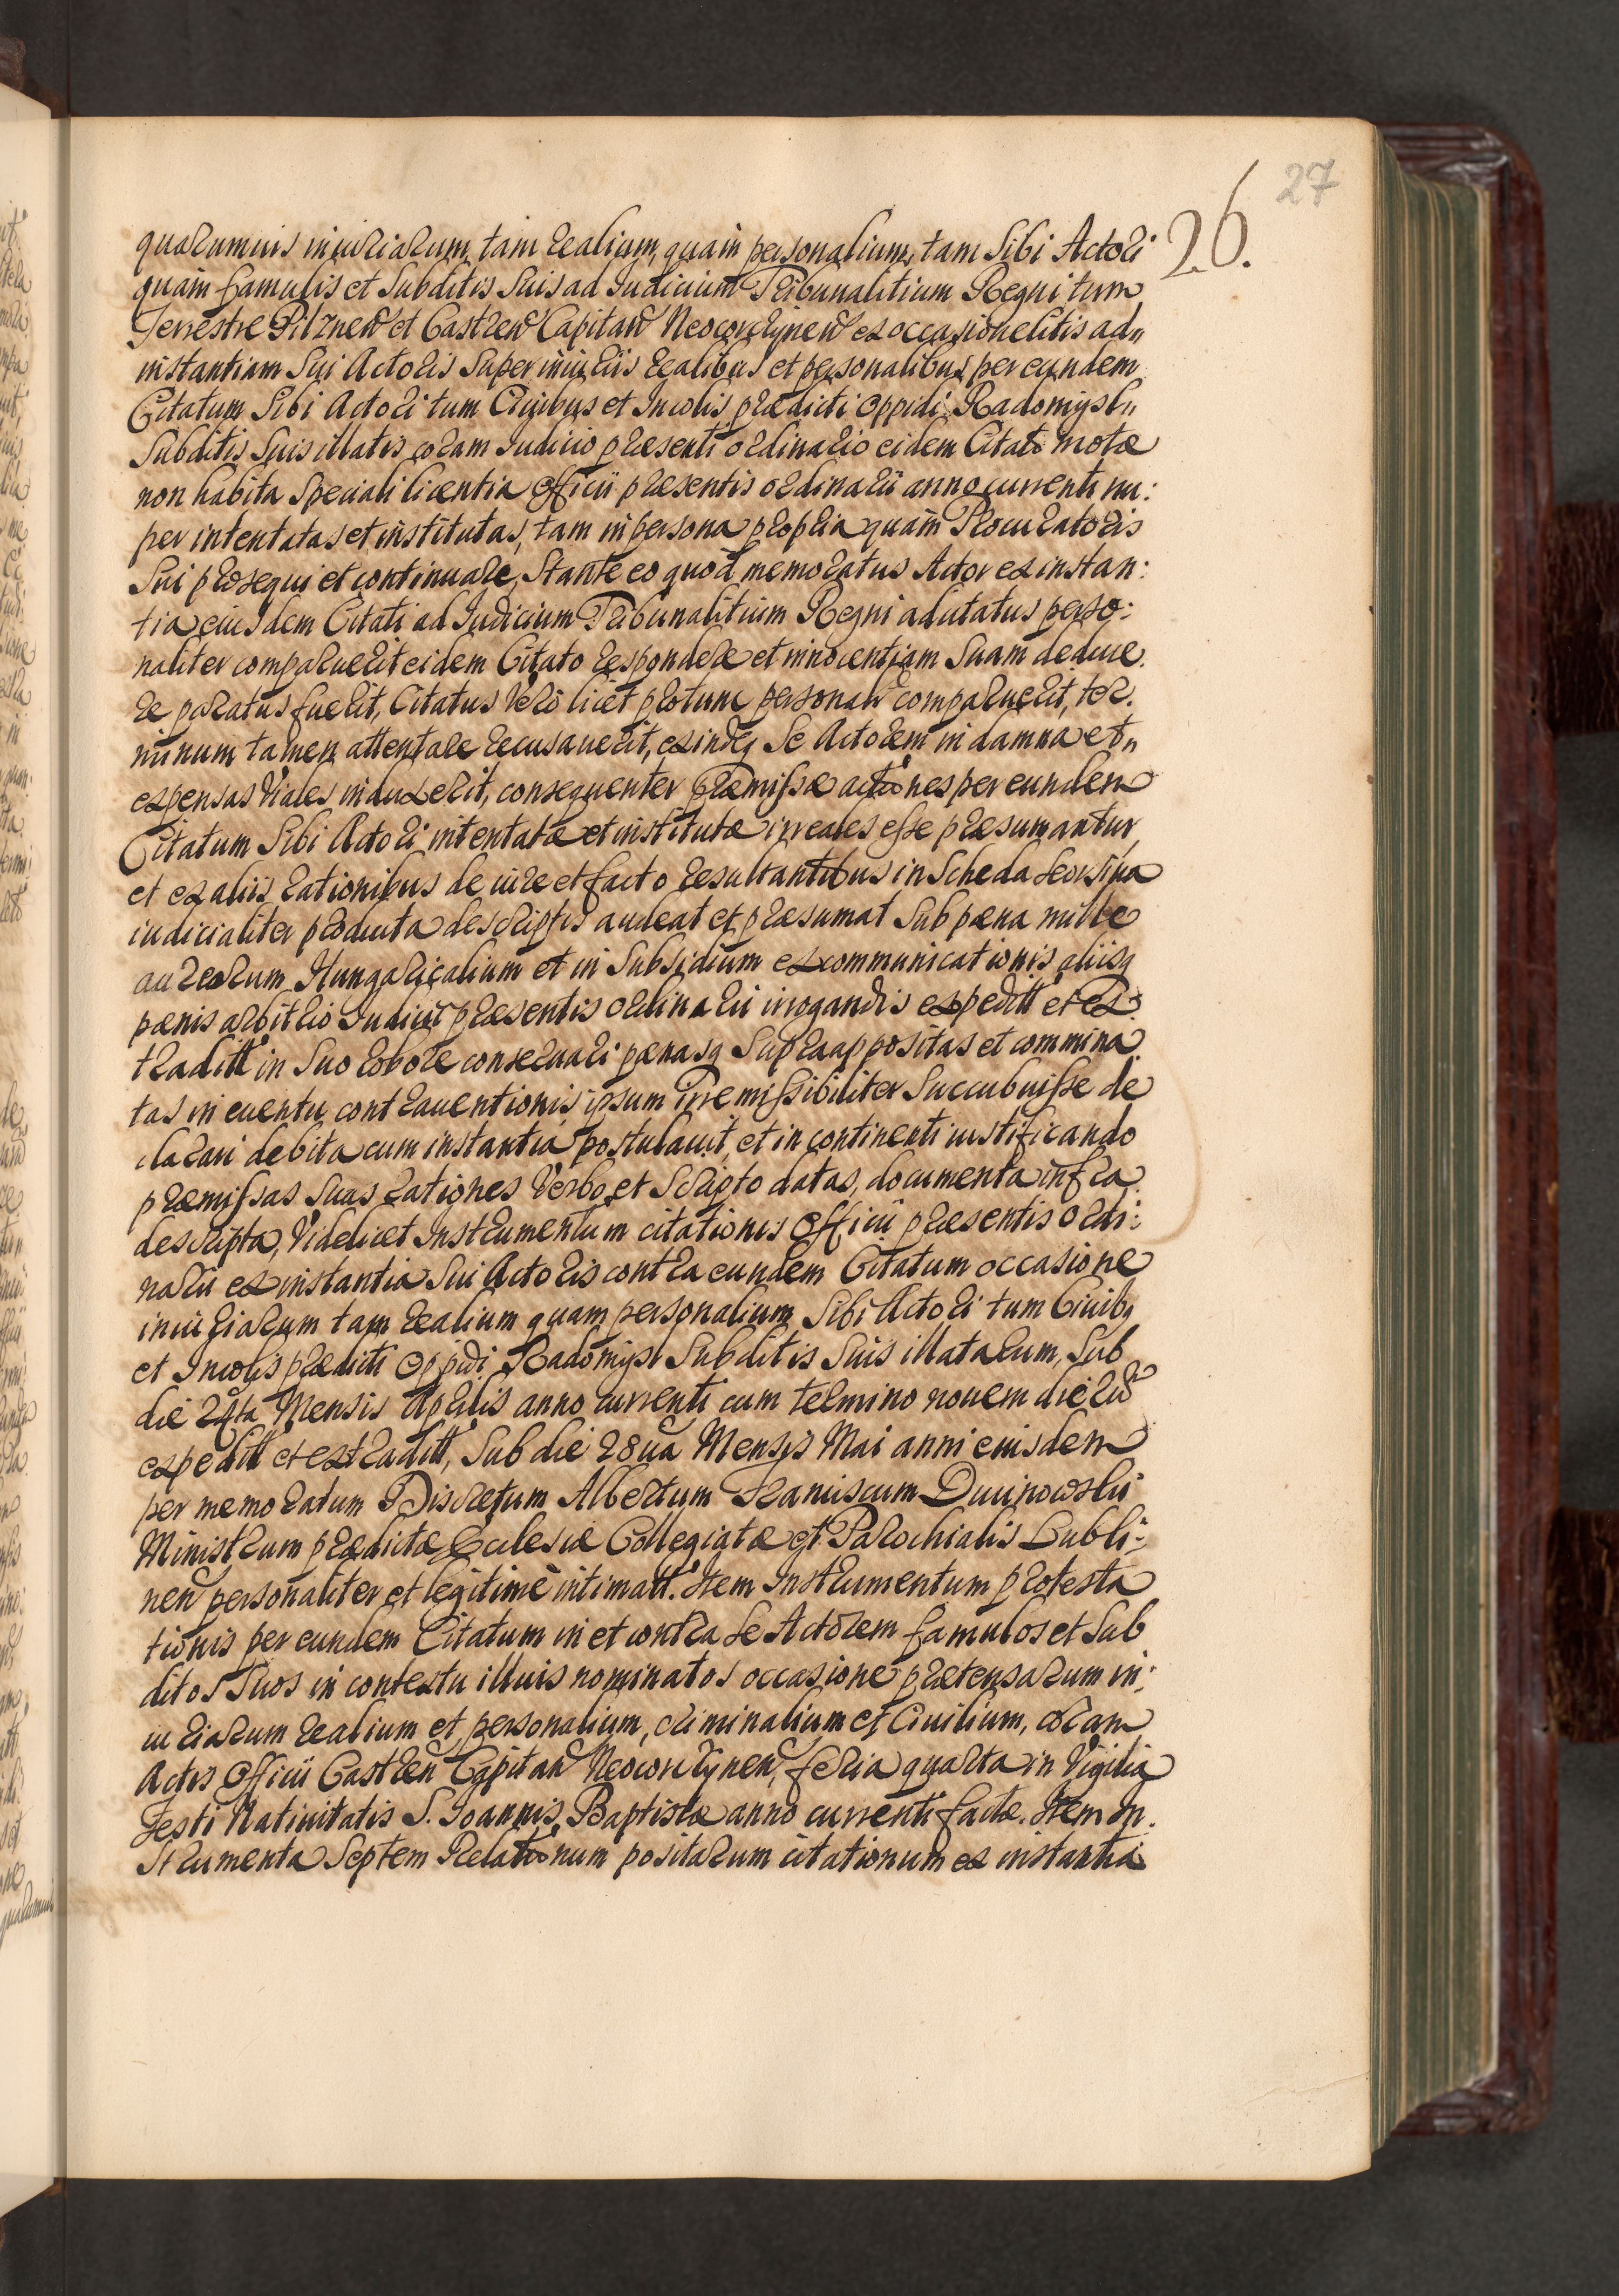 27
26.
quarumuis iniuriarum, tam realium, quam personalium, tam Sibi Actori
quam famulis et Subditis Suis ad Iudicium Tribunalitium Regni tum
Terrestre Pilznen et Castren Capitan Neocorczynen ex occasione litis ad„
instantiam Sui Actoris Super iniuriis realibus et personalibus per eundem
Citatum Sibi Actori tum Ciuibus et Incolis prædicti Oppidi Radomysl„
Subditis Suis illatis coram Iudicio præsenti ordinario eidem Citato motæ
non habita Speciali licentia Officii præsentis ordinarii anno currenti nu:
per intentatas et institutas, tam in persona propria quam Procuratoris
Sui prosequi et continuare, Stante eo quod memoratus Actor ex instan:
tia eiusdem Citati ad Iudicium Tribunalitium Regni adcitatus perso:
naliter comparuerit eidem Citato respondere et innocentiam Suam deduce.
re paratus fuerit, Citatus Vero licet protunc personalr comparuerit, ter.
minum tamen attentare recusauerit, exindeq Se Actorem in damna et„
expensas Viales induxerit, consequenter præmissæ actiones per eundem
Citatum Sibi Actori intentatæ et institutæ irreales esse præsumantur,
et ex aliis rationibus de iure et facto resultantibus in Scheda Seorsiua
iudicialiter producta descriptis audeat et præsumat Sub pæna mille
aureorum Hungaricalium et in Subsidium excommunicationis aliisq
pænis arbitrio Iudicii præsentis ordinarii irrogandis expeditt et ex.
traditt in Suo robore conseruari pænasq Supra appositas et commina
tas in euentu contrauentionis ipsum irremissibiliter Succubuisse de
clarari debita cum instantia postulauit, et in continenti iustificando
præmissas Suas rationes Verbo et Scripto datas, documenta infra
descripta, Videlicet Instrumentum citationis Officii præsentis ordi:
narii ex instantia Sui Actoris contra eundem Citatum occasione
iniuriarum tam realium quam personalium Sibi Actori tum Ciuibq
et Incolis prædicti Oppidi Radomysl Subditis Suis illatarum, Sub
die 24ta Mensis Aprilis anno currenti cum termino nouem dierū
expeditt et extraditt, Sub die 28ua Mensis Mai anni eiusdem
per memoratum Discretum Albertum Franciscum Duninowski
Ministrum prædictæ Ecclesiæ Collegiatæ et Parochialis Lubli:
nen personaliter et legitimè intimatt. Item Instrumentum protesta
tionis per eundem Citatum in et contra Se Actorem famulos et Sub
ditos Suos in contextu illius nominatos occasione prætensarum in:
iuriarum realium et personalium, criminalium et Ciuilium, coram
Actis Officii Castren Capitan Neocorczynen, feria quarta in Vigilia
Festi Natiuitatis S. Ioannis Baptistæ anno currenti factæ. Item In.
Strumenta Septem Relationum positarum citationum ex instantia